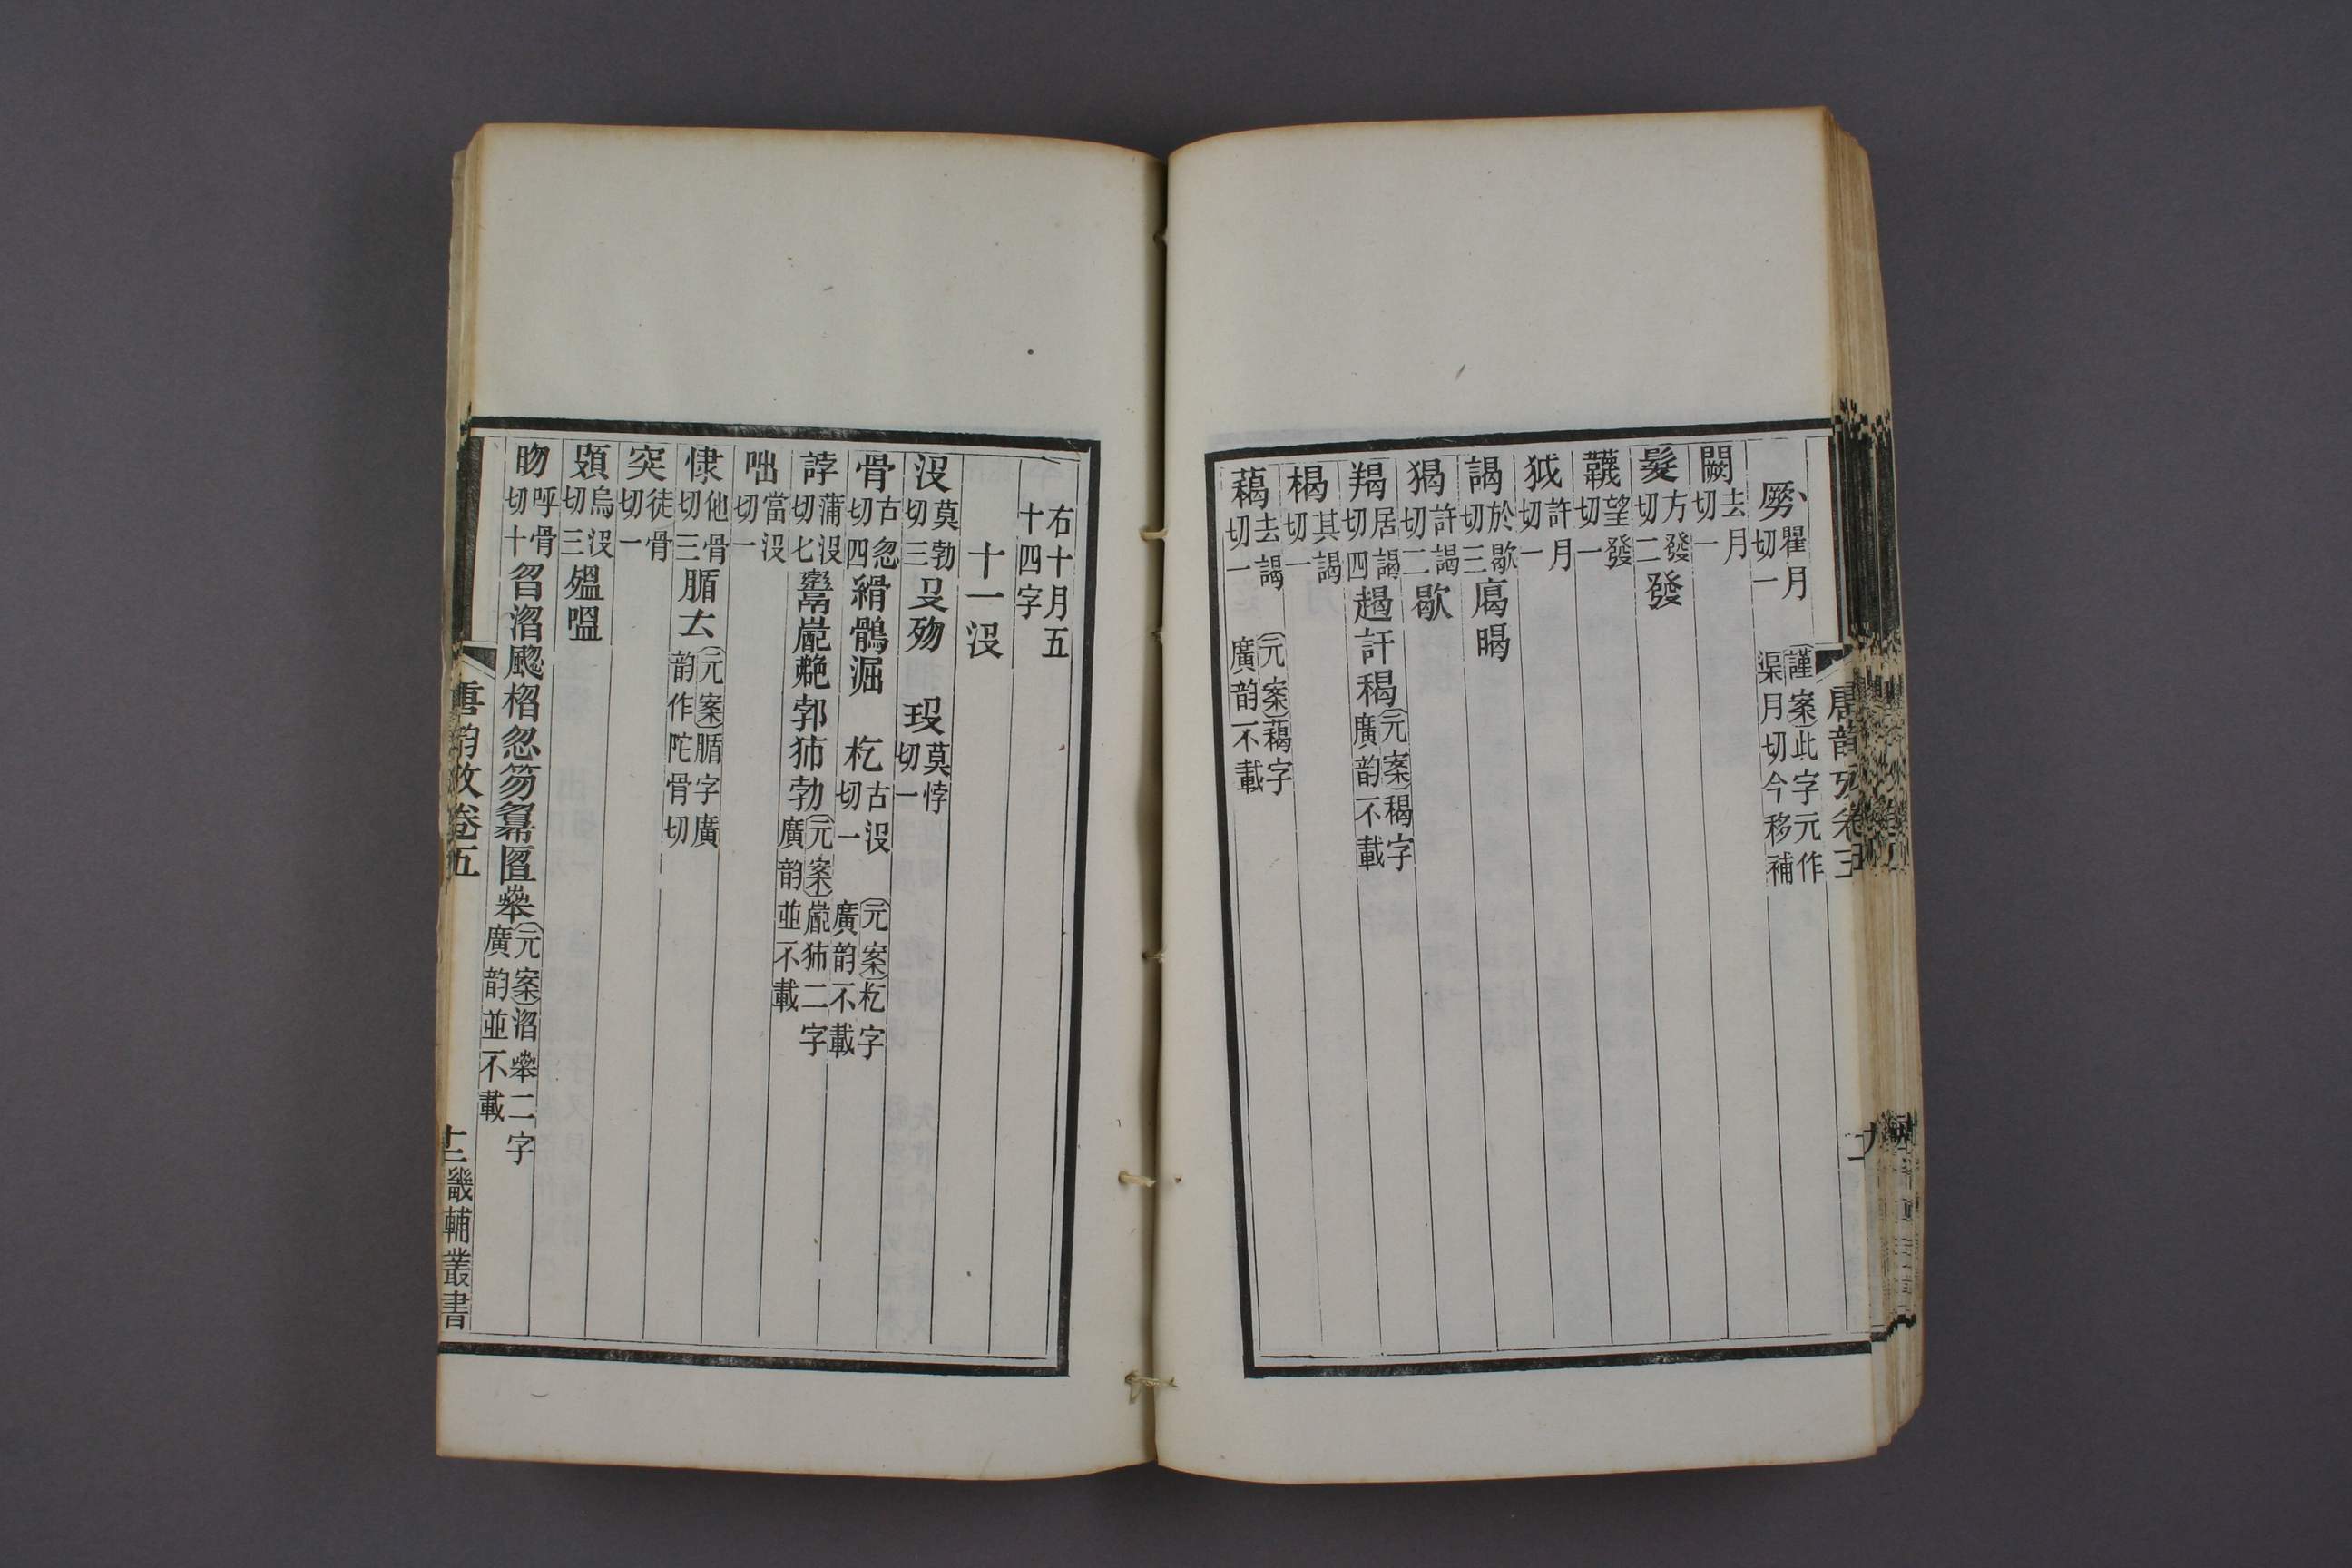 瞿月切一 謹案此字元作渠月切今移補
闕去月切一
髮方發切二發
韈望發切一
狘許月切一
謁於歇切三㵣暍
猲許謁切二歇
羯居謁切四趨訐稩元案稩字廣韵不載
楬其謁切一
藒去謁切一 元案藒字廣韵不載
右十月五十四字
十一沒
沒莫勃切三𠬛歾 玟莫悖切一
骨古忽切四縎鶻淈 杚古沒切一 元案杚字廣韵不載
誖蒲沒切七鬻艴郭㹀勃元案㹀二字廣韵並不載
咄當沒切一
㥆他骨切三腯𠫓元案腯字廣韵作陀骨切
突徒骨切一
頞烏沒切三殟嗢
昒呼骨切十曶淴颮榾忽笏匫元案二字廣韵並不載
唐韵攷卷五
十二畿輔叢書